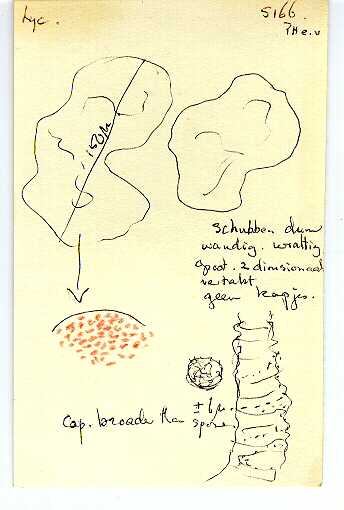 Lyc.
5166.
150µ
Schubben dun
wandig. wrattig
groot. 2 dimensionaal
vertakt
geen kapjes.
± 6µ.
Cap. broader than spore